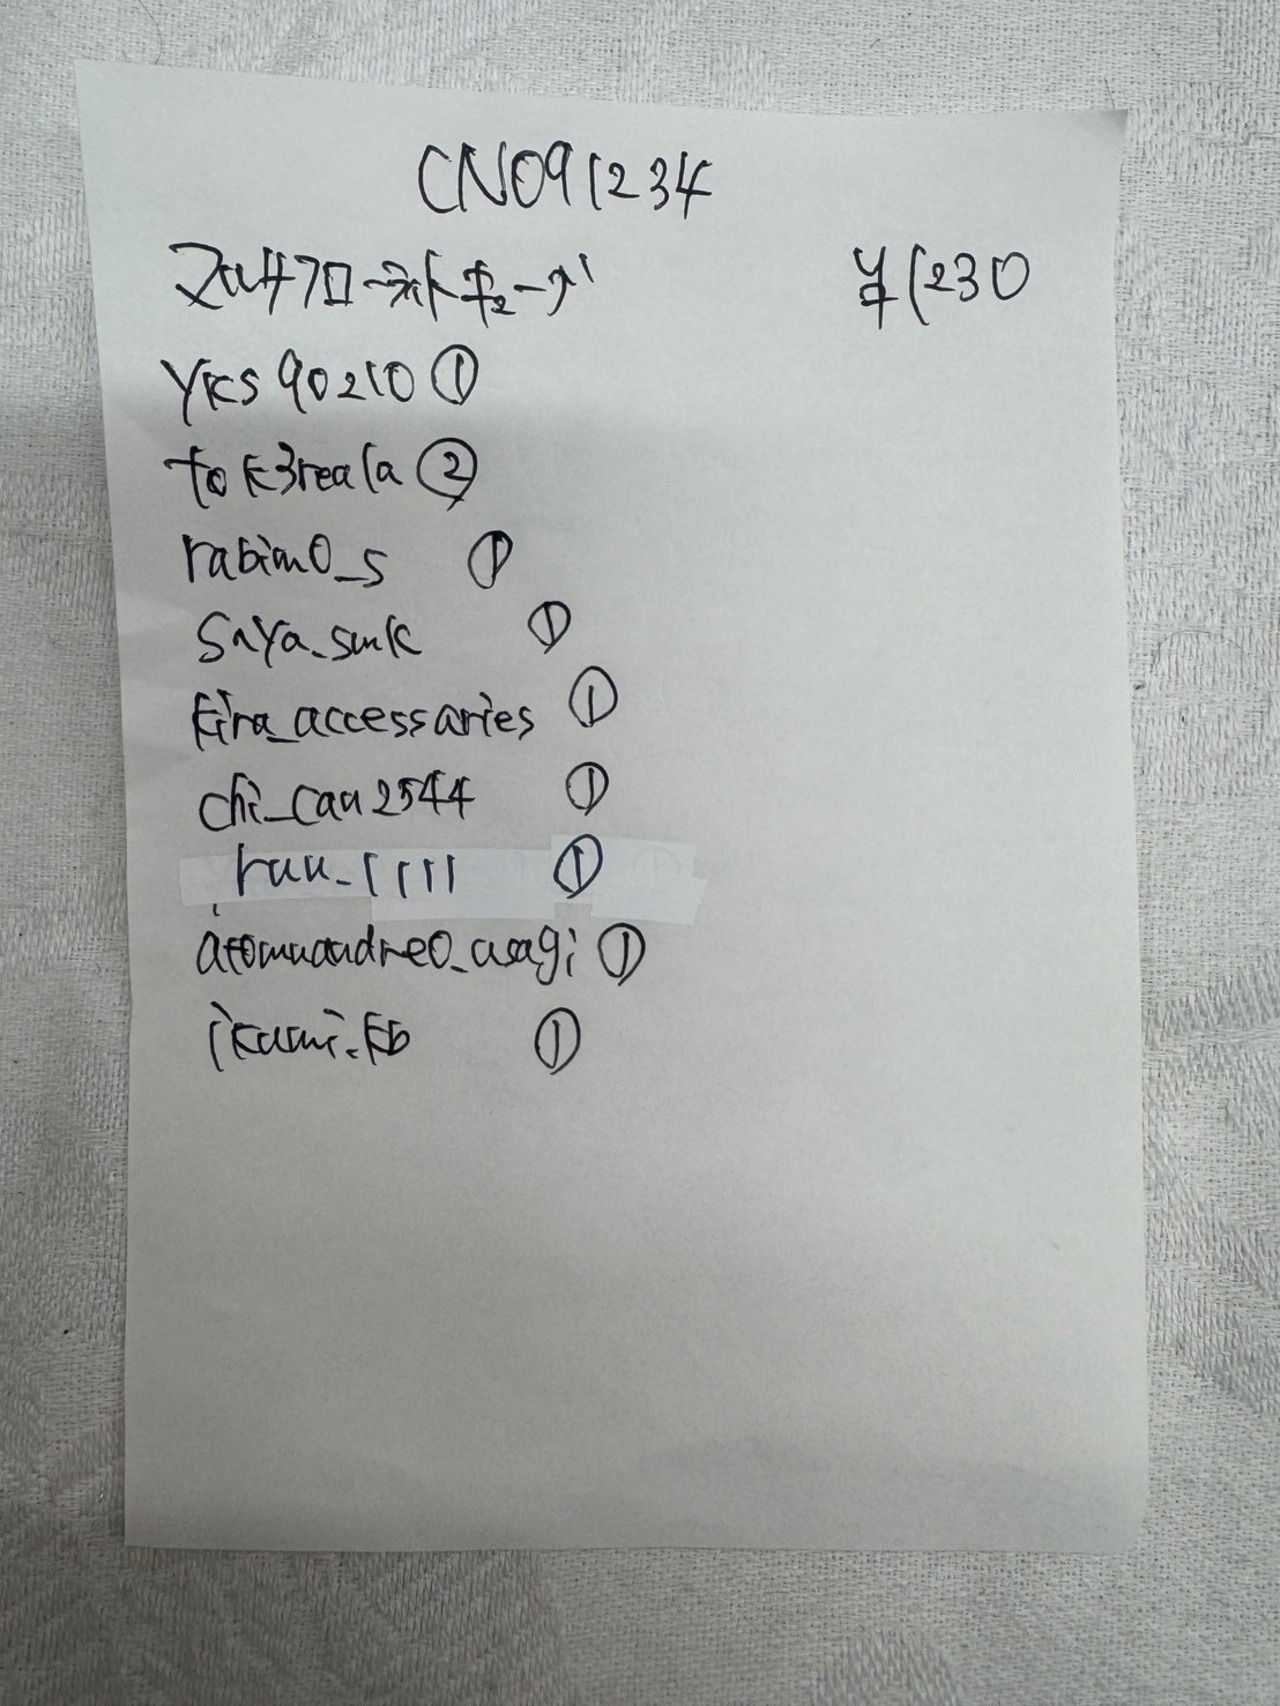 CN091234
¥1230
yks90210 ①
tok3reala ②
rabim0_s ①
saya_smk ①
kira_accessaries ①
chi_caa2544 ①
ruu_1111 ①
atomuandre0_usagi ①
ikumi_kb ①